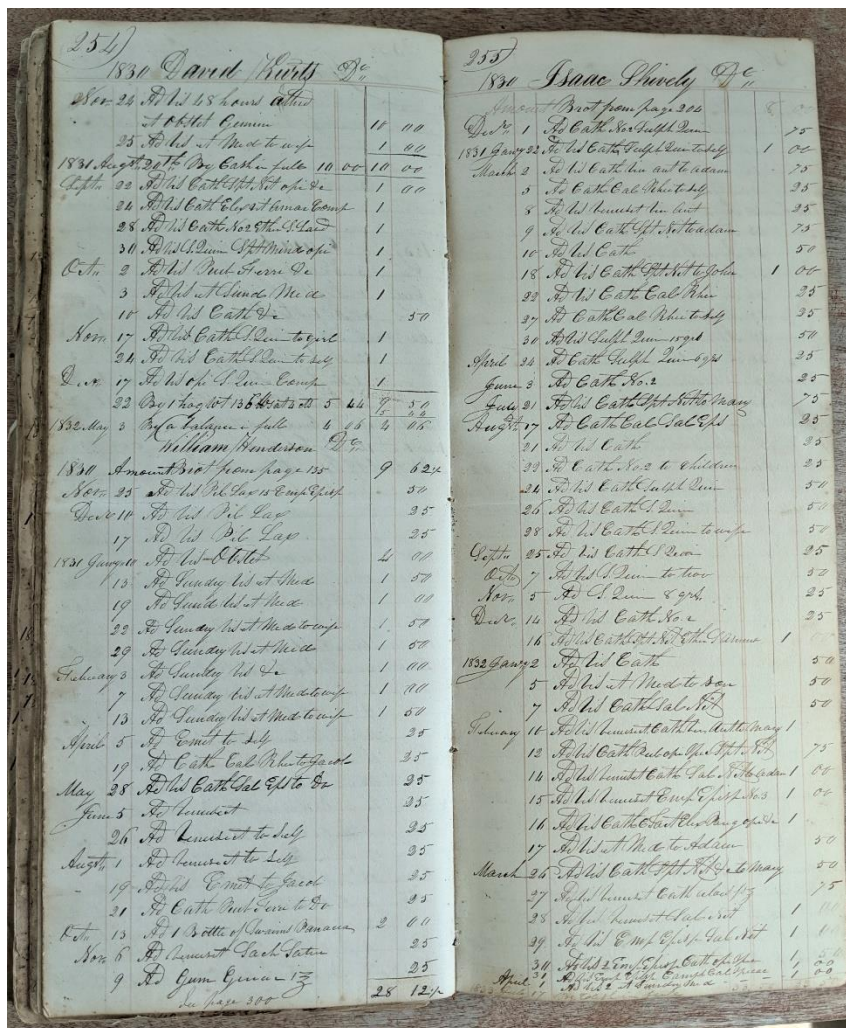 254)
1830 David Kurts Dr
Nov. 24 Ad Vis 48 hours attend
et Obstet 10 00
25 Ad Vis et Med to wife 1 00
1831 Augst 20th By Cash in full 10 00 10 00
Septr 22 Ad Vis Cath Spt Nit opi &c 1 00
24 Ad Vis Cath Comp 1
28 Ad Vis Cath No 2 1
30 Ad Vis S. Quin Spt opi 1
Octr 2 Ad Vis &c 1
3 Ad Vis et Sund Med 1
10 Ad Vis Cath &c 50
Novr 17 Ad Vis Cath S. Quin to girl 1
24 Ad Vis Cath S. Quin to self 1
Dec 17 Ad Vis opi S. Quin Comp 1
22 By 1 hog wt 136 at 4 5 44 9 50
1832 May 3 By a balance in full 4 06 4 06
William Henderson Dr
1830 Amount Brot from page 135 9 62½
Novr 25 Ad Vis Pil Lax 15 Emp Episp 50
Decr 10 Ad Vis Pil Lax 25
17 Ad Vis Pil Lax 25
1831 Jany 10 Ad Vis Obstet 4 00
13 Ad Sundry Vis et Med 1 50
19 Ad Sund Vis et Med 1 00
22 Ad Sundry Vis et Med to wife 1 50
29 Ad Sundry Vis et Med 1 50
February 3 Ad Sundry Vis &c 1 00
7 Ad Sundry Vis et Med to wife 1 00
13 Ad Sundry Vis et Med to wife 1 50
April 5 Ad Emet to self 25
19 Ad Cath Cal Rhe to Jacob 25
May 28 Ad Vis Cath Sal Eps to Do 25
June 5 Ad Venesect 25
26 Ad Venesect to self 25
Augst 1 Ad Venesect to self 25
19 Ad Vis Emet to Jacob 25
21 Ad Cath to Do 25
Octr 13 Ad 1 Bottle of Swaims Panacea 2 00
Novr 6 Ad Venesect Sach Satur 25
9 Ad Gum 1℥ 25
See page 300 28 12½
255)
1830 Isaac Shively Dr
Amount Brot from page 204 8
Decr 1 Ad Cath No 2 Sulph Quin 75
1831 Jany 22 Ad Vis Cath Sulph Quin to self 1 00
March 2 Ad Vis Cath Vin ant to adam 75
5 Ad Cath Cal Rhe to self 25
8 Ad Vis Venesect Vin ant 25
9 Ad Vis Cath Spt Nit to adam 75
10 Ad Vis Cath 50
18 Ad Vis Cath Spt Nit to John 1 00
22 Ad Vis Cath Cal Rhe 25
27 Ad Cath Cal Rhe to self 25
30 Ad Vis Sulph Quin 15 grs 50
April 24 Ad Cath Sulph Quin 6 grs 25
June 3 Ad Cath No. 2 25
July 21 Ad Vis Cath Spt Nit to Mary 75
Augst 17 Ad Cath Cal Sal Eps 25
21 Ad Vis Cath 25
22 Ad Cath No. 2 to children 25
24 Ad Vis Cath Sulph Quin 50
26 Ad Vis Cath S. Quin 50
28 Ad Vis Cath S. Quin to wife 50
Septr 25 Ad Vis Cath S. Quin 25
Octr 7 Ad Vis S. Quin to two 50
Novr 5 Ad S. Quin 8 grs. 25
Decr 14 Ad Vis Cath No 2 25
16 Ad Vis Cath Spt Nit 1
1832 Jany 2 Ad Vis Cath 50
5 Ad Vis et Med to son 50
7 Ad Vis Cath Sal Nit 50
February 10 Ad Vis Venesect Cath Vin Ant to Mary 1
12 Ad Vis Cath Spt Nit 75
14 Ad Vis Venesect Cath Sal Nit to adam 1 00
15 Ad Vis Venesect Emp Episp No. 3 1 00
16 Ad Vis Cath opi &c 1
17 Ad Vis et Med to Adam 50
March 26 Ad Vis Cath Spt Nit &c to Mary 50
27 Ad Vis Venesect Cath 75
28 Ad Vis Venesect Sal Nit 1
29 Ad Vis Emp Episp Sal Nit 1
30 Ad Vis 2 Emp Episp Cath 1
31 Ad Vis Emp 1 00
April 1 Ad Vis 2 et Sundry Med 1 00